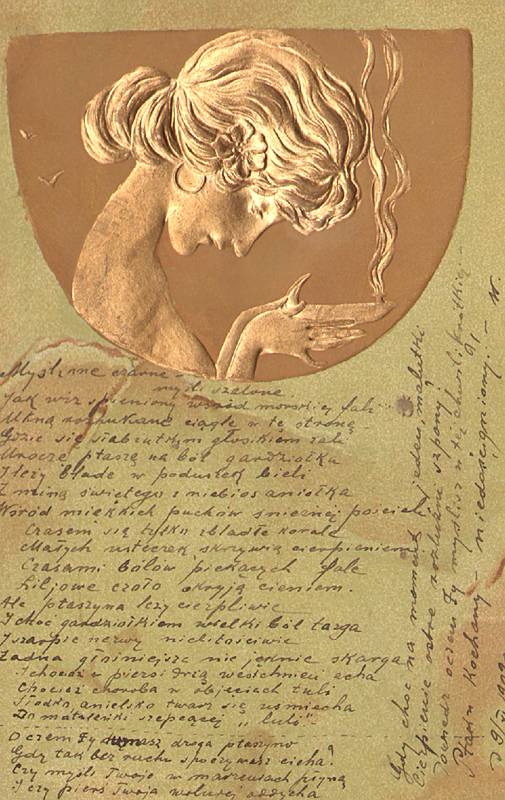 Myśl mnie czarne –
myśl szalone.
Jak wir spieniony wśród morskiej fali
Mkną rozhukane ciągle w tę stroną
Gdzie się słabiutkim głoskiem żali
Urocze ptaszę na ból gardziołka
I leży blade w poduszek bieli
Z miną świętego z niebios aniołka
Wśród miękkich puchów śnieżnej pościeli
Czasem się tylko zbladłe korale
Małych usteczek skrzywią cierpieniem
Czasami bólów piekących fale
Liljowe czoło okryją cieniem.
Ale ptaszyna leży cierpliwie
I choć gardziołkiem wielki ból targa
I szarpie nerwy nielitościwie
Żadna głośniejsze nie jęknie skarga
I chociaż w piersi drżą westchnień echa
Chociaż choroba w objęciach tuli
Słodko, anielsko twarz się uśmiecha
Do mateńki szepcącej „luli"
O czem Ty dumasz droga ptaszyno
Gdy tak bez ruchu spoczywasz cicha?
Czy myśli Twoje w marzeniach płyną
I czy pierś Twoja wolniej oddycha
Gdy choć na moment jeden, malutki
Cierpienie ostre rozluźni szpony
Powiedz o czem Ty myślisz w tej chwili krótkiej
Ptaszku Kochany – niedościgniony. –
W.